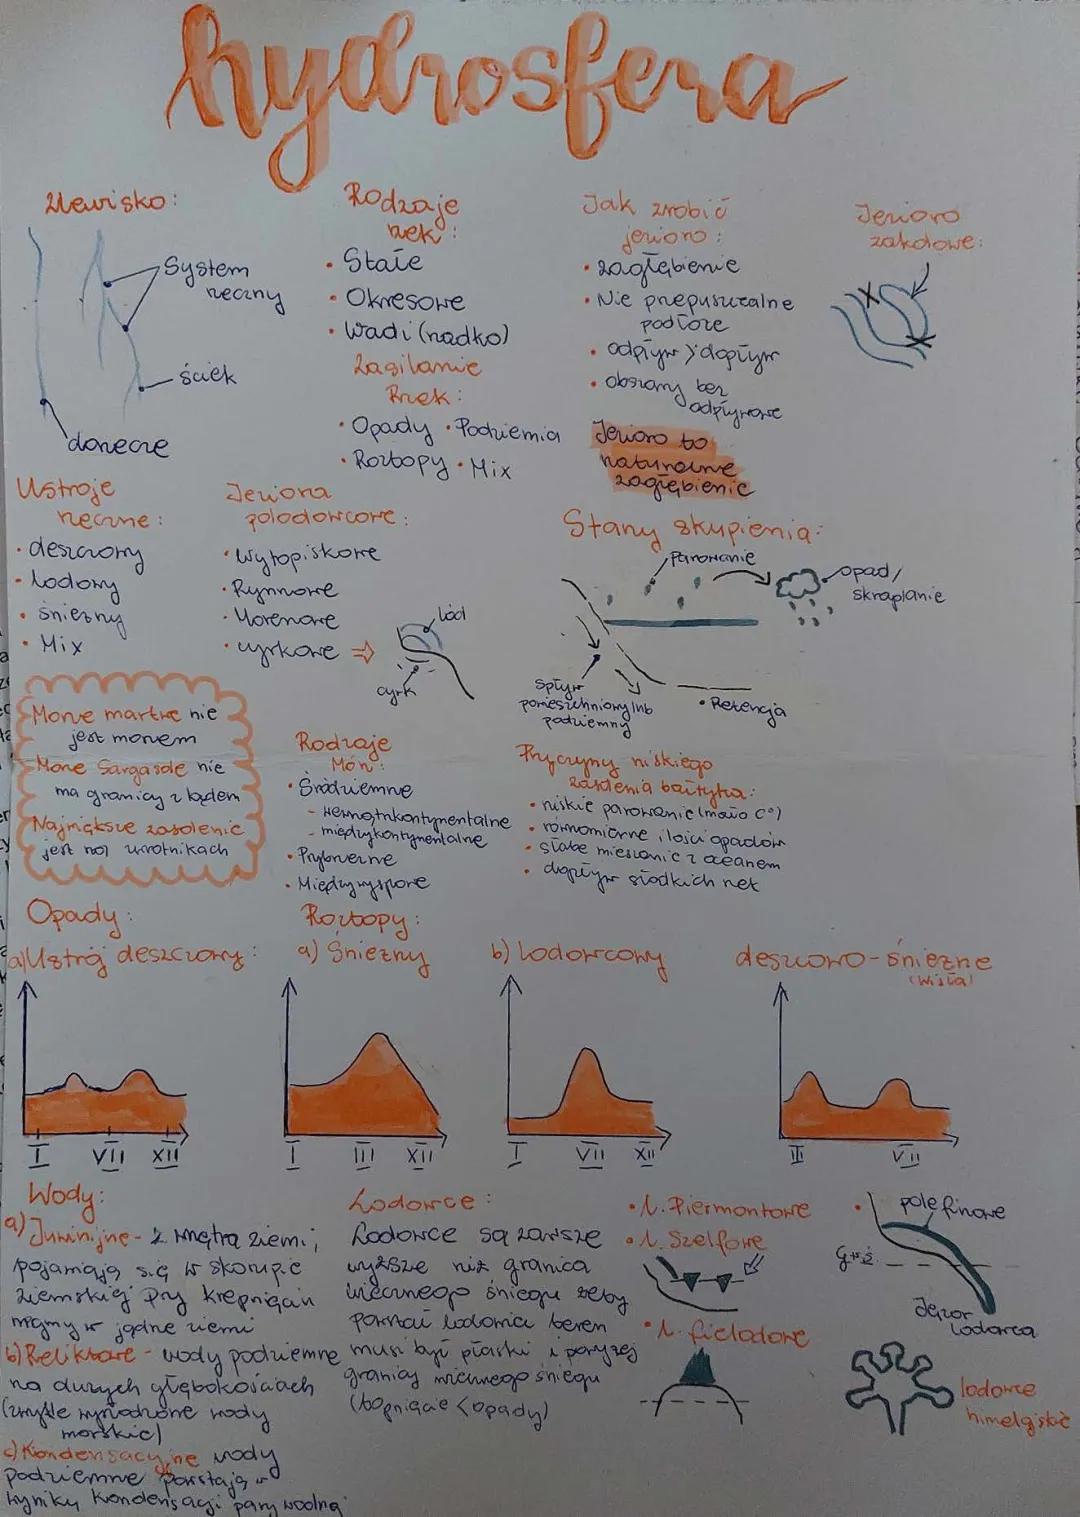 hydrosfera
Zlewisko:
System
rzeczny
ściek
dorzecze
Rodzaje
rzek:
• Stałe
• Okresowe
• Wadi (rzadko)
Zasilanie
Rzek:
• Opady • Podziemia
• Roztopy • Mix
Jak zrobić
jezioro:
• zagłębienie
• Nie przepuszczalne
podłoże
• odpływ > dopływ
• obszary bez
odpływowe
Jezioro to
naturalne
zagłębienie
Jezioro
zakolowe:
Ustroje
rzeczne:
• deszczowy
• lodowy
• śnieżny
• Mix
Jeziora
polodowcowe:
• Wytopiskowe
• Rynnowe
• Morenowe
• cyrkowe ⇒
lód
cyrk
Stany skupienia:
Parowanie
opad/
skraplanie
Spływ
powierzchniowy lub
podziemny
• Retencja
Morze martwe nie
jest morzem
Morze Sargasowe nie
ma granicy z lądem
Największe zasolenie
jest na zwrotnikach
Rodzaje
Mórz:
• Śródziemne
- wewnątrzkontynentalne
- międzykontynentalne
• Przybrzeżne
• Międzywyspowe
Przyczyny niskiego
zasolenia bałtyku:
• niskie parowanie (mało C°)
• równomierne ilości opadów
• słabe mieszanie z oceanem
• dopływ słodkich rzek
Opady:
a) Ustrój deszczowy:
I VII XII
Roztopy:
a) Śnieżny
I III XII
b) lodowcowy
I VII XII
deszczowo-śnieżne
(Wisła)
III VII
Wody:
a) Juwinijne - z wnętrza ziemi;
pojawiają się w skorupie
ziemskiej Przy krzepnięciu
magmy w jądrze ziemi
b) Reliktowe - wody podziemne
na dużych głębokościach
(zwykle wyrodzone wody
morskie)
c) Kondensacyjne wody
podziemne Powstają w
wyniku kondensacji pary wodnej
Lodowce:
Lodowce są zawsze
wyższe niż granica
wiecznego śniegu żeby
powstał lodowiec teren
musi być płaski i powyżej
granicy wiecznego śniegu
(topnięcie < opady)
• l. Piermontowe
• l. Szelfowe
• l. fieldowe
pole firnowe
g.w.ś.
Jęzor
lodowca
lodowce
himalajskie